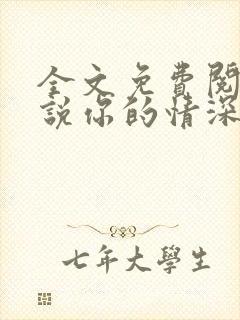 全文免費閱
說你的情深
七年大學生